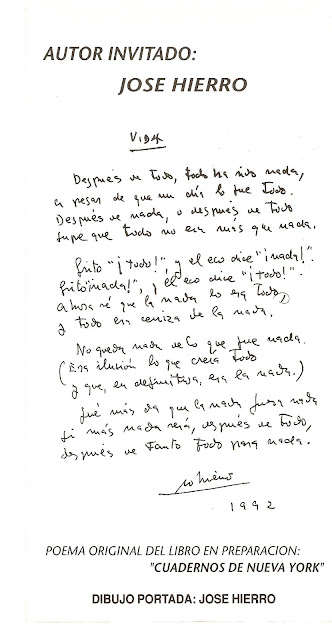 AUTOR INVITADO:
JOSE HIERRO
VIDA
Después de todo, todo ha sido nada,
a pesar de que un día lo fue todo.
Después de nada, o después de todo
supe que todo no era más que nada.
Grito "¡todo!", y el eco dice "¡nada!".
Grito "¡nada!", y el eco dice "¡todo!".
Ahora sé que la nada lo era todo,
y todo era ceniza de la nada.
No queda nada de lo que fue nada.
(Era ilusión lo que creía todo
y que, en definitiva, era la nada.)
Qué más da que la nada fuera nada
si más nada será, después de todo,
después de tanto todo para nada.
1992
POEMA ORIGINAL DEL LIBRO EN PREPARACION:
"CUADERNOS DE NUEVA YORK"
DIBUJO PORTADA: JOSE HIERRO